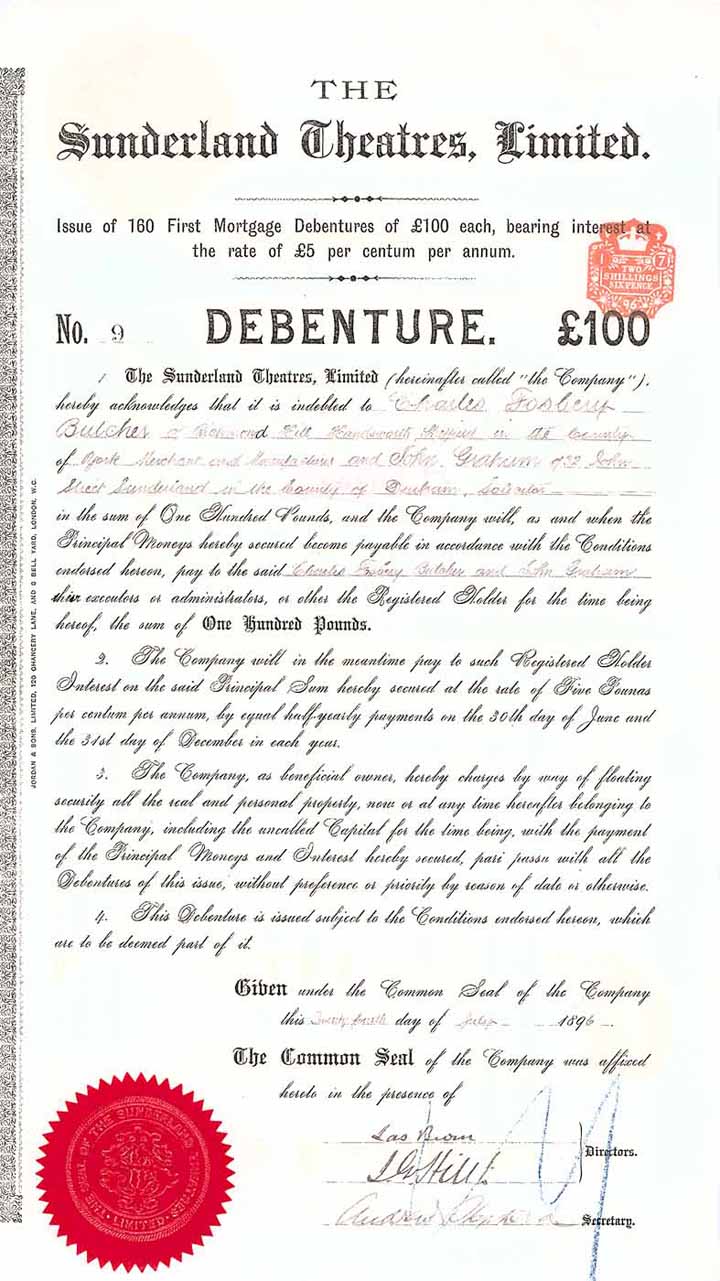 THE
Sunderland Theatres, Limited.
Issue of 160 First Mortgage Debentures of £100 each, bearing interest at
the rate of £5 per centum per annum.
1 7
TWO
SHILLINGS
SIXPENCE
96
No. 9 DEBENTURE. £100
1 The Sunderland Theatres, Limited (hereinafter called "the Company"),
hereby acknowledges that it is indebted to Charles Fosbery
Butcher of Richmond Hill Handsworth Sheffield in the County
of York Merchant and Manufacturer and John Graham of 32 John
Street Sunderland in the County of Durham, Solicitor
in the sum of One Hundred Pounds, and the Company will, as and when the
Principal Moneys hereby secured become payable in accordance with the Conditions
endorsed hereon, pay to the said Charles Fosbery Butcher and John Graham
their executors or administrators, or other the Registered Holder for the time being
hereof, the sum of One Hundred Pounds.
2. The Company will in the meantime pay to such Registered Holder
Interest on the said Principal Sum hereby secured at the rate of Five Pounds
per centum per annum, by equal half-yearly payments on the 30th day of June and
the 31st day of December in each year.
3. The Company, as beneficial owner, hereby charges by way of floating
security all the real and personal property, now or at any time hereafter belonging to
the Company, including the uncalled Capital for the time being, with the payment
of the Principal Moneys and Interest hereby secured, pari passu with all the
Debentures of this issue, without preference or priority by reason of date or otherwise.
4. This Debenture is issued subject to the Conditions endorsed hereon, which
are to be deemed part of it.
Given under the Common Seal of the Company
this Twenty fourth day of July 1896
The Common Seal of the Company was affixed
hereto in the presence of
Jas Brown
Directors.
Andrew Shepherd Secretary.
THE SEAL OF THE SUNDERLAND THEATRES LIMITED
JORDAN & SONS, LIMITED, 120 CHANCERY LANE, AND 8 BELL YARD, LONDON, W.C.